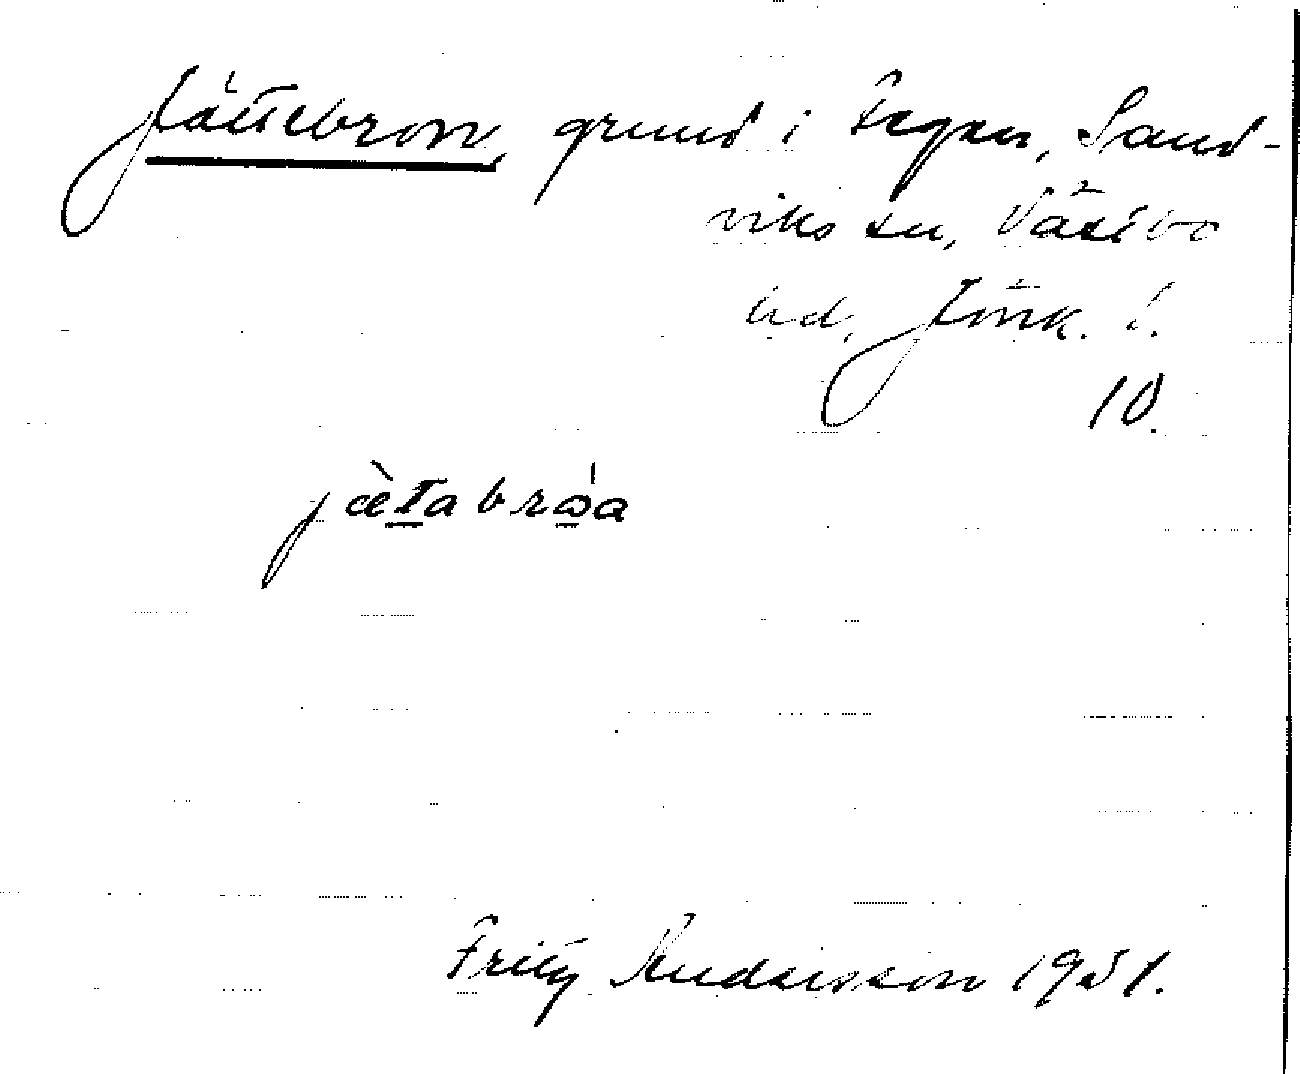 Jättebron, grund i Fegen, Sand-
viks sn, Västbo
hd, Jönk. l.
10.
jæ̀tabrǫ́a
Fritz Andersson 1931.